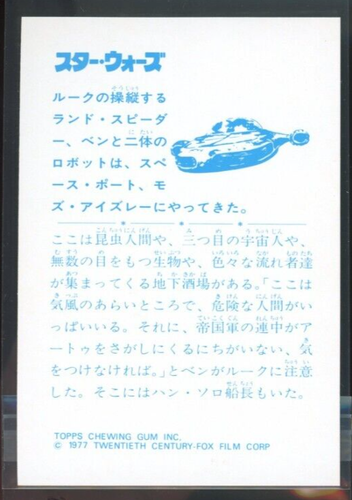 スター・ウォーズ
ルークの操縦する
ランド・スピーダ
ー、ベンと二体の
ロボットは、スペ
ース・ポート、モ
ズ・アイズレーにやってきた。
ここは昆虫人間や、三つ目の宇宙人や、
無数の目をもつ生物や、色々な流れ者達
が集まってくる地下酒場がある。「ここは
気風のあらいところで、危険な人間がい
っぱいいる。それに、帝国軍の連中がア
ートゥをさがしにくるにちがいない、気
をつけなければ。」とベンがルークに注意
した。そこにはハン・ソロ船長もいた。
TOPPS CHEWING GUM INC.
© 1977 TWENTIETH CENTURY-FOX FILM CORP